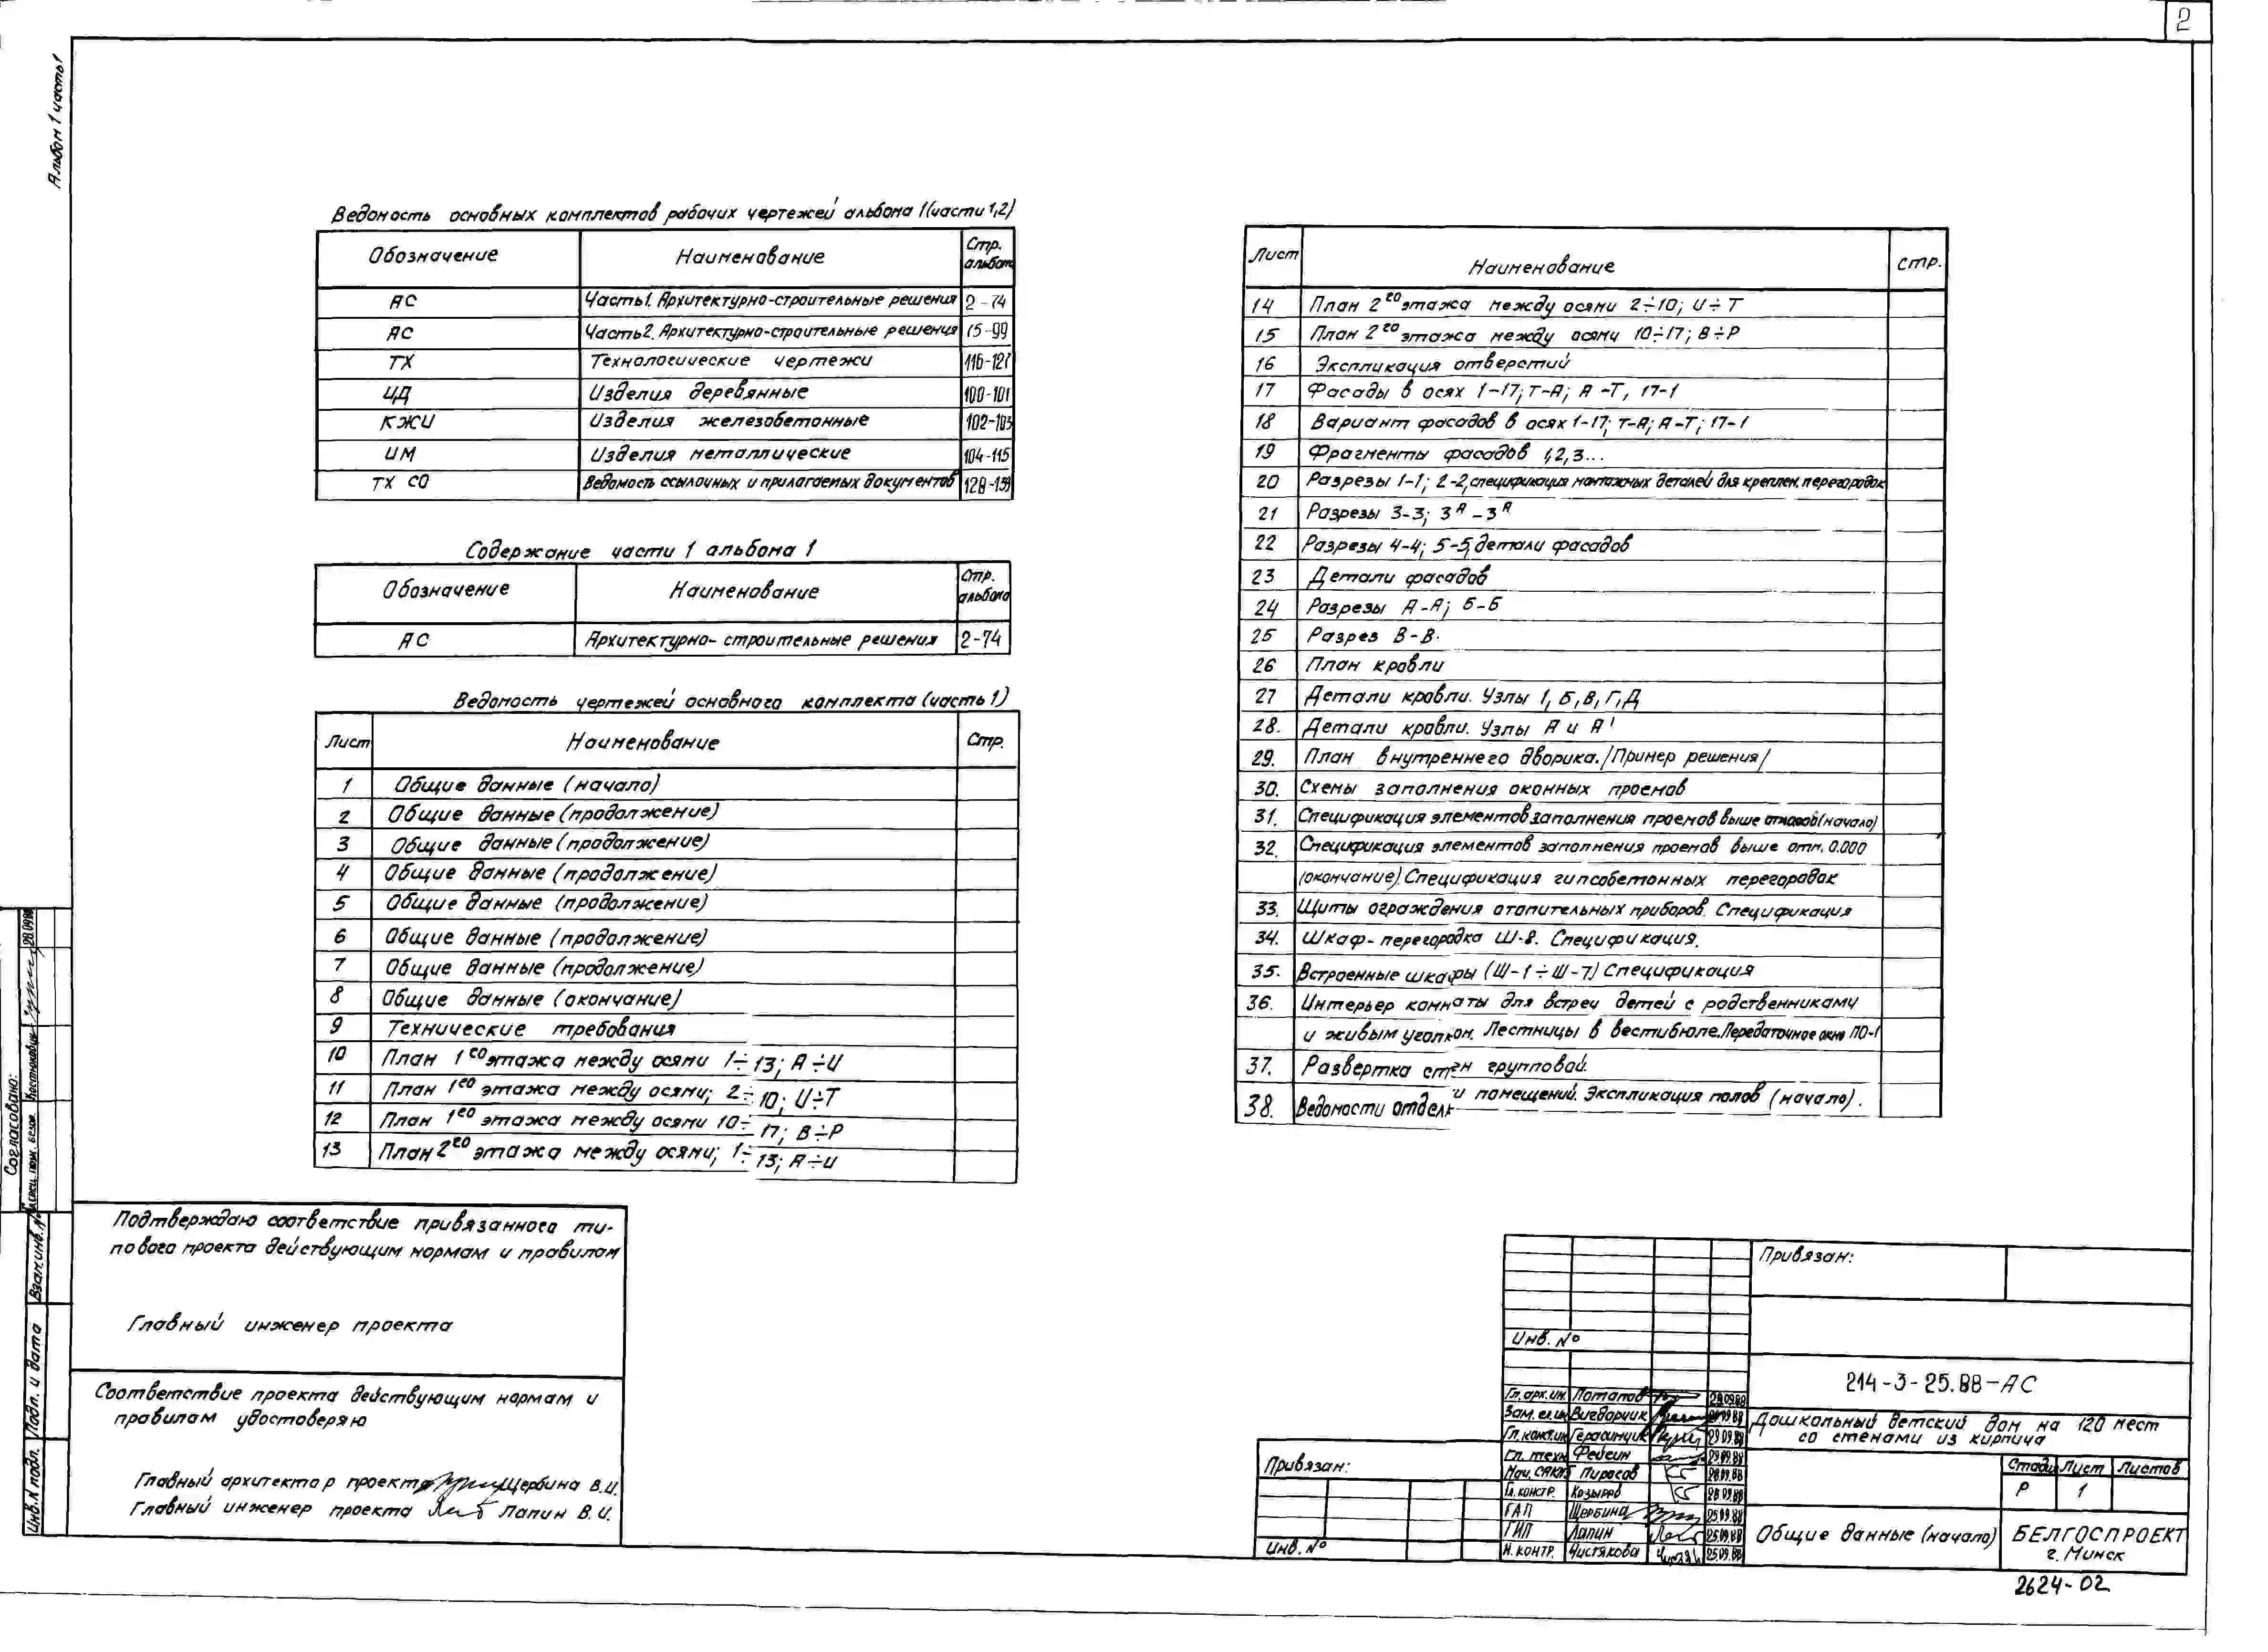 2
Альбом 1 часть 1
Ведомость основных комплектов рабочих чертежей альбома 1 (части 1,2)
Обозначение Наименование Стр. альбома
АС Часть 1. Архитектурно-строительные решения 2-74
АС Часть 2. Архитектурно-строительные решения 75-99
ТХ Технологические чертежи 116-127
ИД Изделия деревянные 100-101
КЖИ Изделия железобетонные 102-103
ИМ Изделия металлические 104-115
ТХ СО Ведомость ссылочных и прилагаемых документов 128-139
Содержание части 1 альбома 1
Обозначение Наименование Стр. альбома
АС Архитектурно-строительные решения 2-74
Ведомость чертежей основного комплекта (часть 1)
Лист Наименование Стр.
1 Общие данные (начало)
2 Общие данные (продолжение)
3 Общие данные (продолжение)
4 Общие данные (продолжение)
5 Общие данные (продолжение)
6 Общие данные (продолжение)
7 Общие данные (продолжение)
8 Общие данные (окончание)
9 Технические требования
10 План 1го этажа между осями 1÷13; А÷И
11 План 1го этажа между осями; 2÷10; И÷Т
12 План 1го этажа между осями 10÷17; В÷Р
13 План 2го этажа между осями; 1÷13; А÷И
Лист Наименование Стр.
14 План 2го этажа между осями 2÷10; И÷Т
15 План 2го этажа между осями 10÷17; В÷Р
16 Экспликация отверстий
17 Фасады в осях 1-17; Т-А; А-Т, 17-1
18 Вариант фасадов в осях 1-17; Т-А; А-Т; 17-1
19 Фрагменты фасадов 1,2,3...
20 Разрезы 1-1; 2-2, спецификация монтажных деталей для креплен. перегородок
21 Разрезы 3-3; 3А-3А
22 Разрезы 4-4; 5-5, детали фасадов
23 Детали фасадов
24 Разрезы А-А; Б-Б
25 Разрез В-В.
26 План кровли
27 Детали кровли. Узлы 1, Б, В, Г, Д
28. Детали кровли. Узлы А и А'
29. План внутреннего дворика. /Пример решения/
30. Схемы заполнения оконных проемов
31. Спецификация элементов заполнения проемов выше (начало)
32. Спецификация элементов заполнения проемов выше отм. 0.000
(окончание). Спецификация гипсобетонных перегородок
33. Щиты ограждения отопительных приборов. Спецификация
34. Шкаф-перегородка Ш-8. Спецификация.
35. Встроенные шкафы (Ш-1÷Ш-7) Спецификация
36. Интерьер комнаты для встреч детей с родственниками
и живым уголком. Лестницы в вестибюле. Передаточное окно ПО-1
37. Развертка стен групповой.
38. Ведомости отделки помещений. Экспликация полов (начало).
Согласовано:
28.09.88
Гл. спец. пож. безоп.
Взам.инв.№
Подп. и дата
Инв.№ подл.
Подтверждаю соответствие привязанного ти-
пового проекта действующим нормам и правилам
Главный инженер проекта
Соответствие проекта действующим нормам и
правилам удостоверяю
Главный архитектор проекта Щербина В.И.
Главный инженер проекта Лапин В.И.
Привязан:
Инв. №
Привязан:
Инв. №
214-3-25.88-АС
Гл. арх. ин. Потапов 29.09.88
Зам. гл. ин. Вигдорчик 29.09.88
Гл. конст. ин. Герасимчик 29.09.88
Гл. техн. Фейгин 29.09.88
Нач. САКМ Пирогов 28.09.88
Гл. констр. Козырев 28.09.88
ГАП Щербина 25.09.88
ГИП Лапин 25.09.88
Н. контр. Чистякова 25.09.88
Дошкольный детский дом на 120 мест
со стенами из кирпича
Стадия Лист Листов
Р 1
Общие данные (начало)
БЕЛГОСПРОЕКТ
г. Минск
2624-02